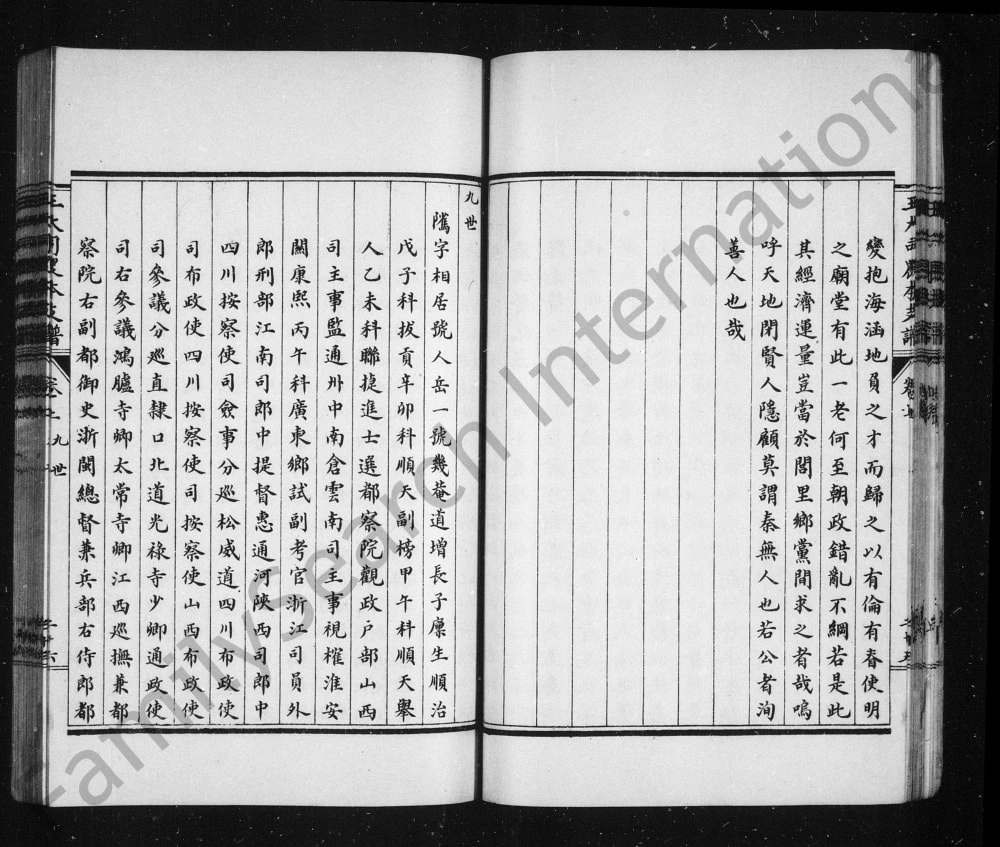 變抱海涵地負之才而歸之以有倫有脊使明
之廟堂有此一老何至朝政錯亂不綱若是此
其經濟運量豈當於閭里鄉黨間求之者哉嗚
呼天地閉賢人隱顧莫謂秦無人也若公者洵
善人也哉
九世
隲字相居號人岳一號幾菴道增長子廩生順治
戊子科拔貢辛卯科順天副榜甲午科順天舉
人乙未科聯捷進士選都察院觀政戶部山西
司主事監通州中南倉雲南司主事視榷淮安
關康熙丙午科廣東鄉試副考官浙江司員外
郎刑部江南司郎中提督惠通河陝西司郎中
四川按察使司僉事分巡松威道四川布政使
司布政使四川按察使司按察使山西布政使
司參議分巡直隸口北道光祿寺少卿通政使
司右參議鴻臚寺卿太常寺卿江西巡撫兼都
察院右副都御史浙閩總督兼兵部右侍郎都
九世
FamilySearch International